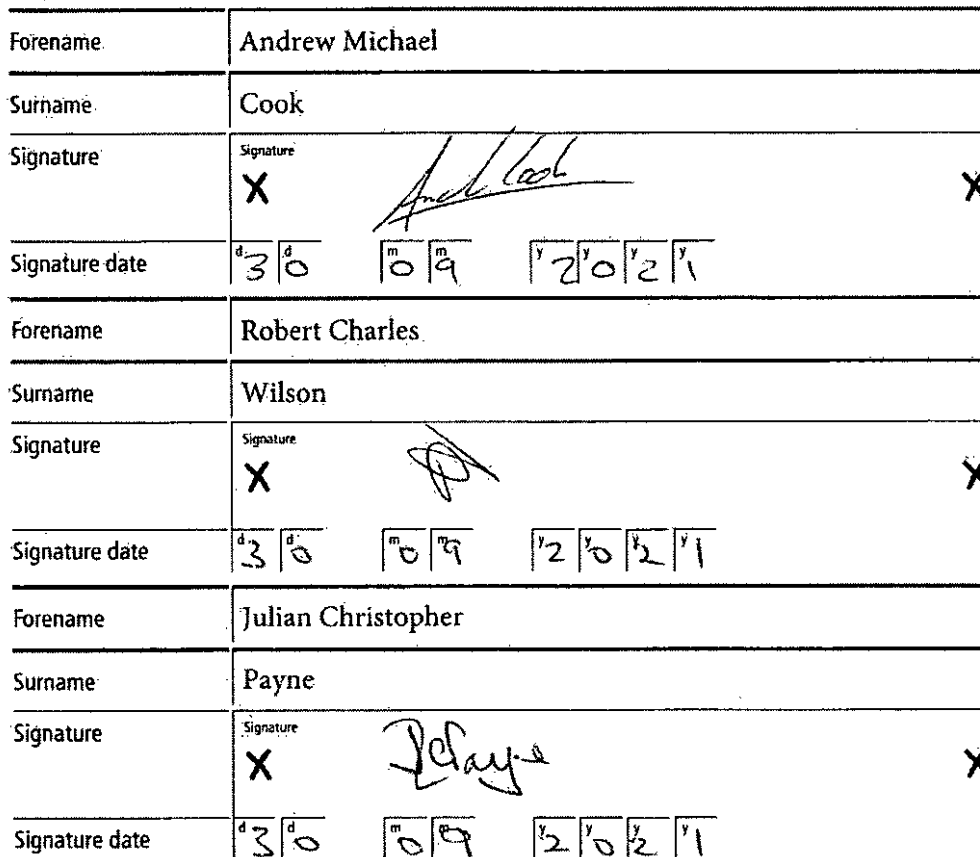 Forename Andrew Michael
Surname Cook
Signature Signature
X Andrew Cook X
Signature date d3 d0 m0 m9 y2 y0 y2 y1
Forename Robert Charles
Surname Wilson
Signature Signature
X X
Signature date d3 d0 m0 m9 y2 y0 y2 y1
Forename Julian Christopher
Surname Payne
Signature Signature
X JCPayne X
Signature date d3 d0 m0 m9 y2 y0 y2 y1